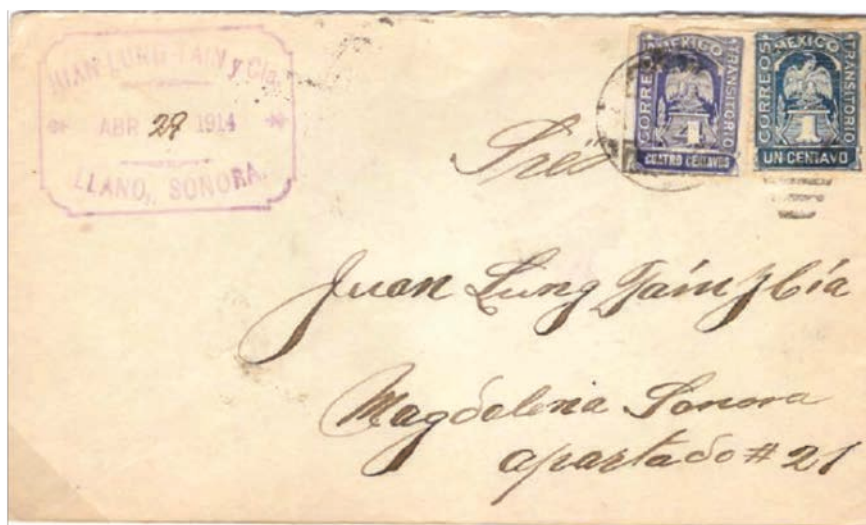 JUAN LUNG TAIN y Cia.
ABR 29 1914
LLANO, SONORA.
CORREOS MEXICO TRANSITORIO
4
CUATRO CENTAVOS
CORREOS MEXICO TRANSITORIO
1
UN CENTAVO
Sres
Juan Lung Taín y Cía
Magdalena Sonora
apartado # 21